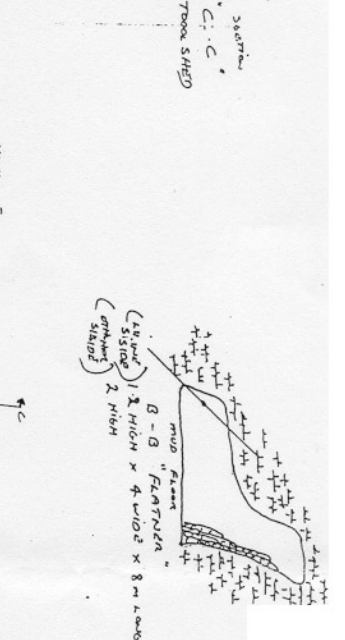 SECTION
" C-C "
TOOOL SHED
MUD FLOOR
B-B "FLATNER"
SISIDE) 1.2 HIGH X 4 WIDE X 8M LONG
SISIDE) 2 HIGH
C